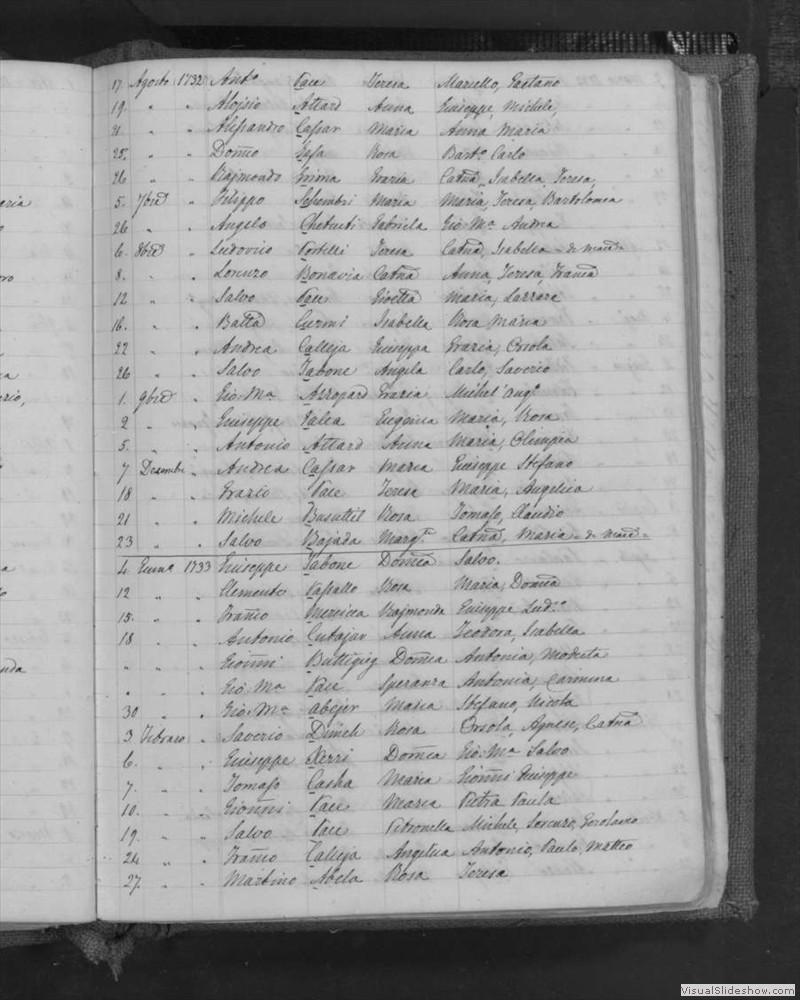 17 Agosto 1732 Ant.o Pace Teresa Mariello, Gaetano
19. " " Aloisio Attard Anna Giuseppe, Michele,
21. " " Alessandro Cassar Maria Anna Maria
25. " " Dom̃co Rosa Bart.o Carlo
26 " " Rajmondo Grima Grazia Catña, Isabella, Teresa,
5. 7bre " Filippo Schembri Maria Maria, Teresa, Bartolomea
26 " " Angelo Chetcuti Gabriela Gio: M.a Andrea
6. 8bre " Ludovico Portelli Teresa Catña, Isabella
8. " " Lorenzo Bonavia Catña Anna, Teresa, Franca
12 " " Salvo Pace Gioetta Maria, Lazzara
16. " " Batta Curmi Isabella Rosa Maria
22 " " Andrea Calleja Giuseppa Grazia, Orsola
26 " " Salvo Tabone Angela Carlo, Saverio
1. 9bre " Gio: M.a Azzopard Grazia Michel' Ang.o
2 " " Giuseppe Valea Eugenia Maria, Rosa
5. " " Antonio Attard Anna Maria, Olimpia
7 Decembre " Andrea Cassar Maria Giuseppe Stefano
18 " " Grazio Pace Teresa Maria, Angelica
21 " " Michele Busuttil Rosa Tomaso, Claudio
23 " " Salvo Bajada Marg.ta Catña, Maria
4 Genn.o 1733 Giuseppe Tabone Dom̃ca Salvo.
12 " " Clemente Vassallo Rosa Maria, Dom̃ca
15. " " Fran̄co Mercieca Rajmonda Giuseppe Lud.co
18 " " Antonio Cutajar Anna Teodora, Isabella
" " " Gioñni Buttigieg Dom̃ca Antonia, Modesta
" " " Gio: M.a Pace Speranza Antonia, Carmina
30 " " Gio: M.a Abejer Maria Stefano, Nicola
3 Febraro " Saverio Dimech Rosa Orsola, Agnese, Catña
6. " " Giuseppe Xerri Dom̃ca Gio: M.a Salvo
7. " " Tomaso Casha Maria Gioñni Giuseppe
10. " " Gioñni Pace Maria Pietra Paula
19. " " Salvo Pace Petronella Michele, Lorenzo, Gerolamo
24 " " Fran̄co Calleja Angelica Antonio, Paulo, Matteo
27. " " Martino Abela Rosa Teresa
VisualSlideshow.com